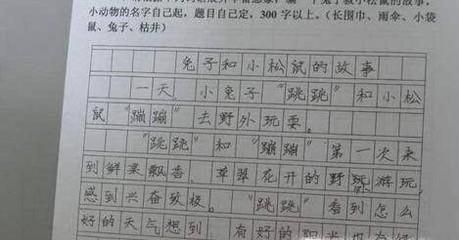 一个兔子救小松鼠的故事，
小动物的名字自己起，题目自己定，300 字以上。（长围巾、雨伞、小袋
鼠、兔子、枯井）
兔子和小松鼠的故事
一天，小兔子“跳跳”和小松
鼠“蹦蹦”去野外玩耍。
“跳跳”和“蹦蹦”第一次来
到鲜菓飘香、草翠花开的野游玩，
感到兴奋致极。“跳跳”看到怎么
好的天气想到有好的阳光也